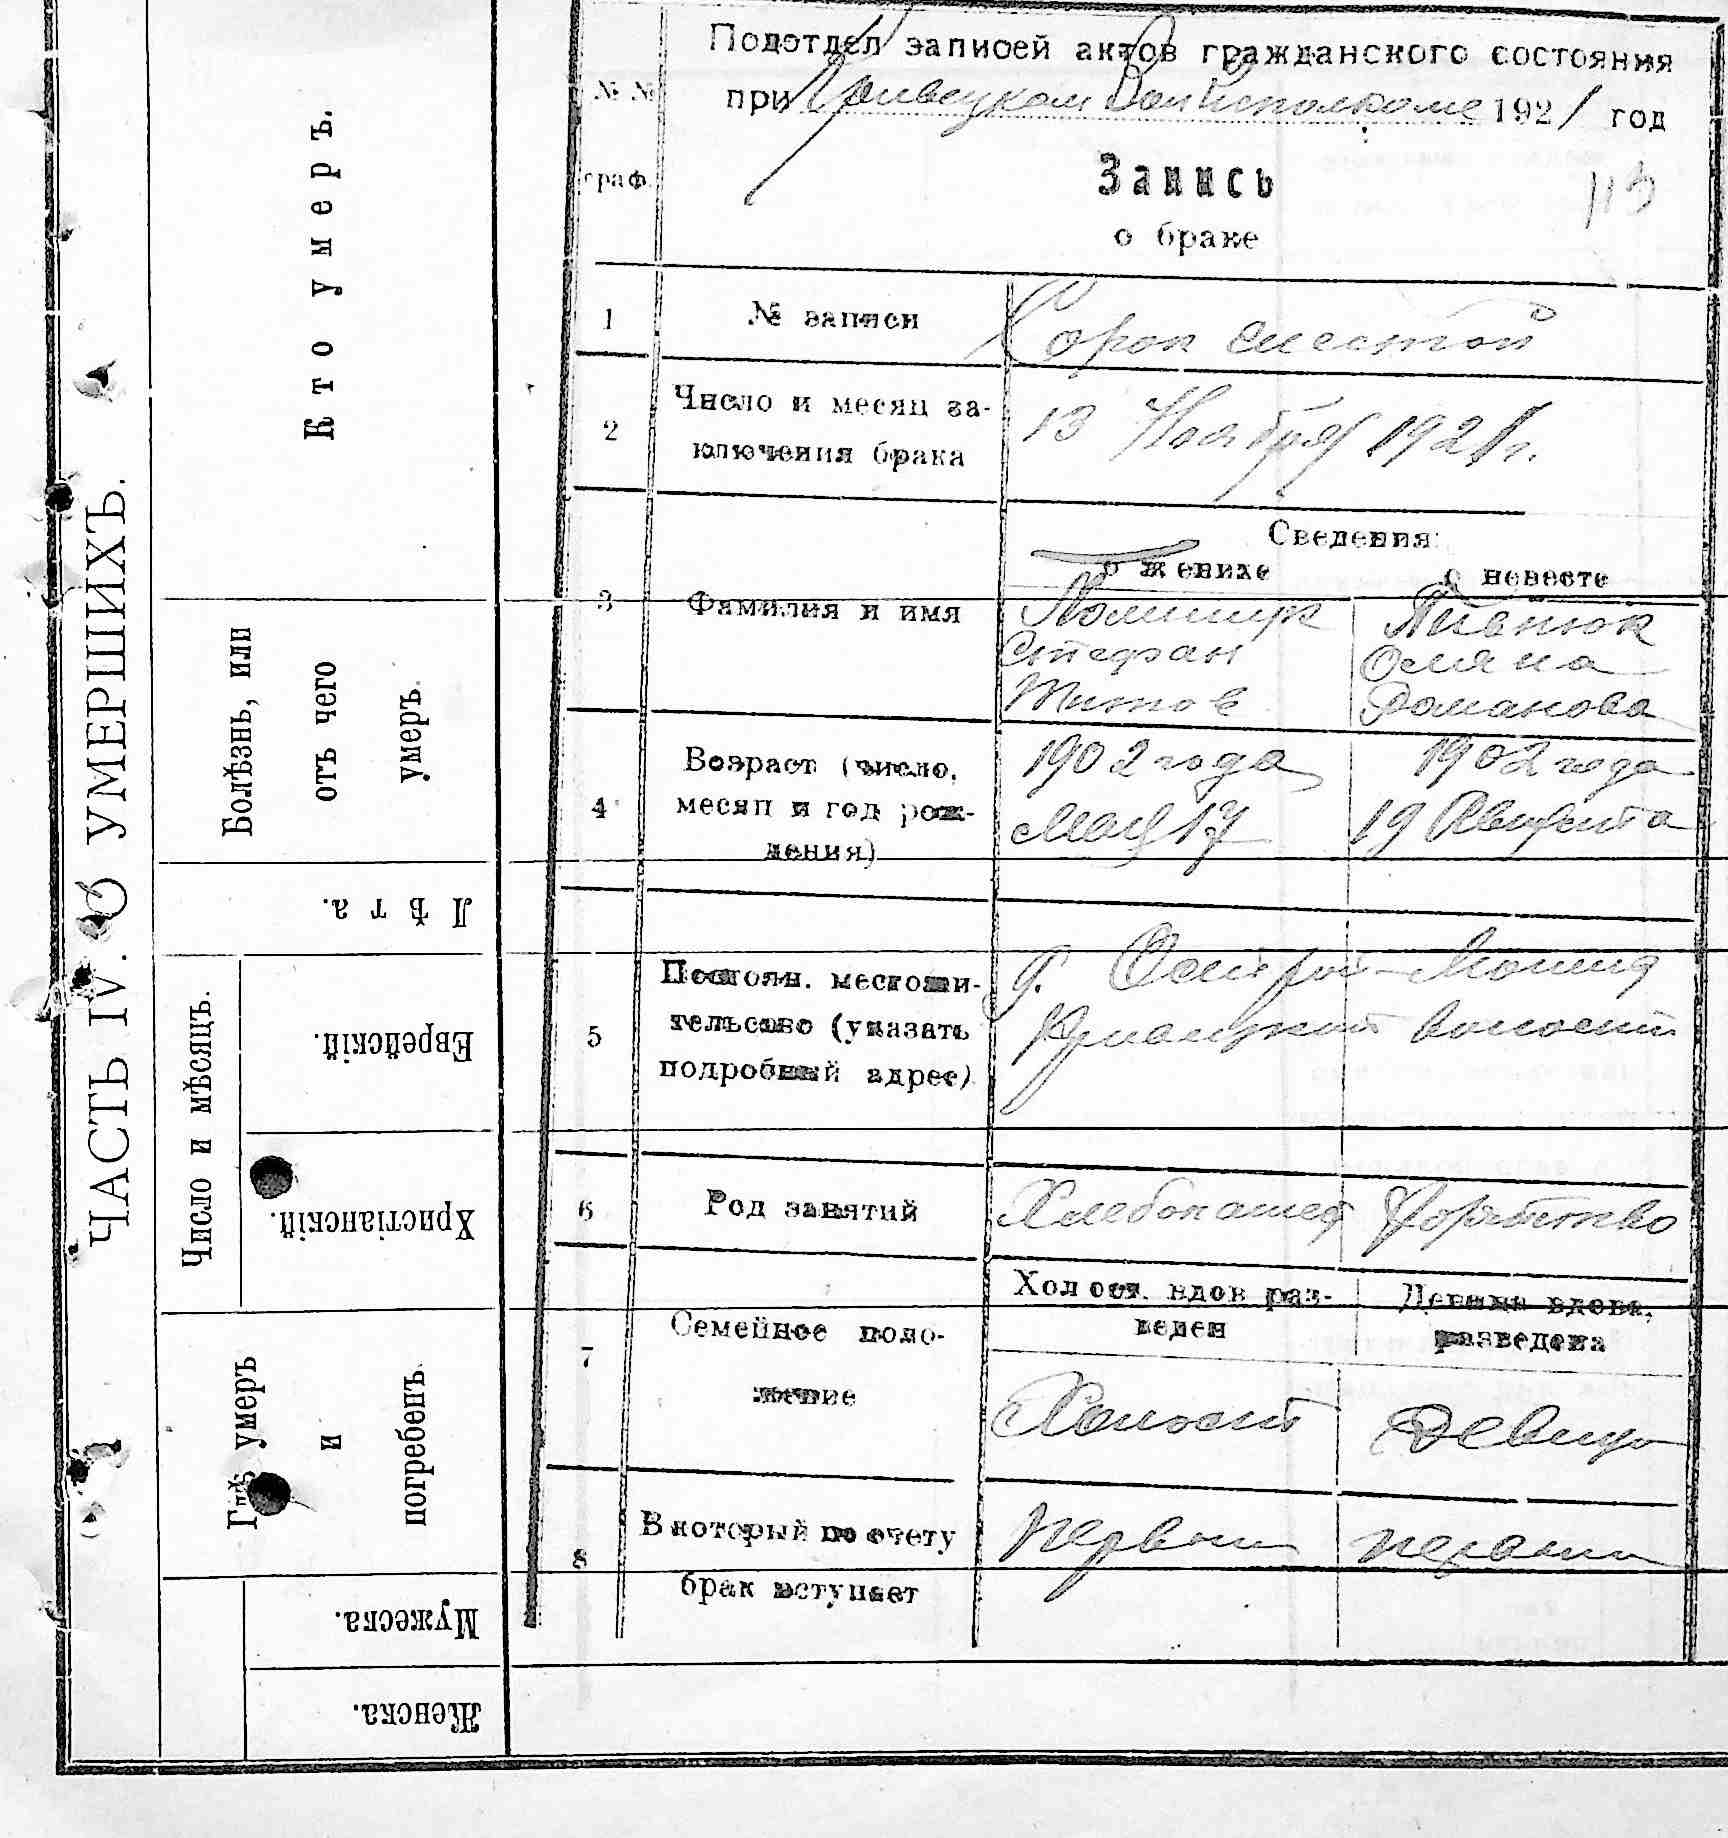 ЧАСТЬ IV. О УМЕРШИХЪ.
Кто умеръ.
Болѣзнь, или
отъ чего
умеръ.
Лѣта.
Число и мѣсяцъ.
Еврейскій.
Христіанскій.
Гдѣ умеръ
и
погребенъ.
Мужеска.
Женска.
№ №
граф.
Подотдел записей актов гражданского состояния
при Волисполкоме 1921 год
Запись
о браке
113
1 № записи Сорок шестой
2 Число и месяц за-
ключения брака 13 Ноября 1921 г.
Сведения:
о женихе о невесте
3 Фамилия и имя
Полищук Пивнюк
Стефан Омяна
Титов Романова
4 Возраст (число,
месяц и год рож-
дения)
1902 года 1902 года
Мая 17 19 Августа
5 Постоян. местожи-
тельство (указать
подробный адрес)
волости
6 Род занятий Хлебопашец
7 Семейное поло-
жение
Холост. вдов раз-
веден
Девица вдова,
разведена
Холост Девица
8 В который по счету
брак вступает
первый первый